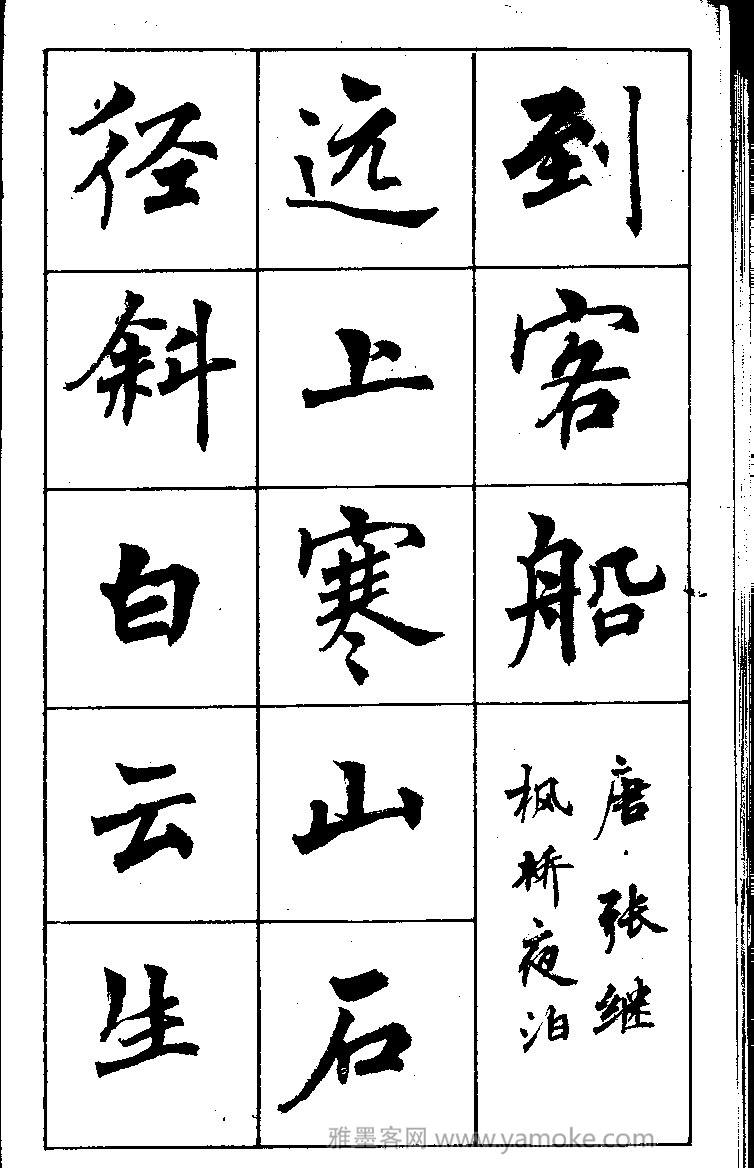 到客船
唐·张继
枫桥夜泊
远上寒山石
径斜白云生
雅墨客网 www.yamoke.com